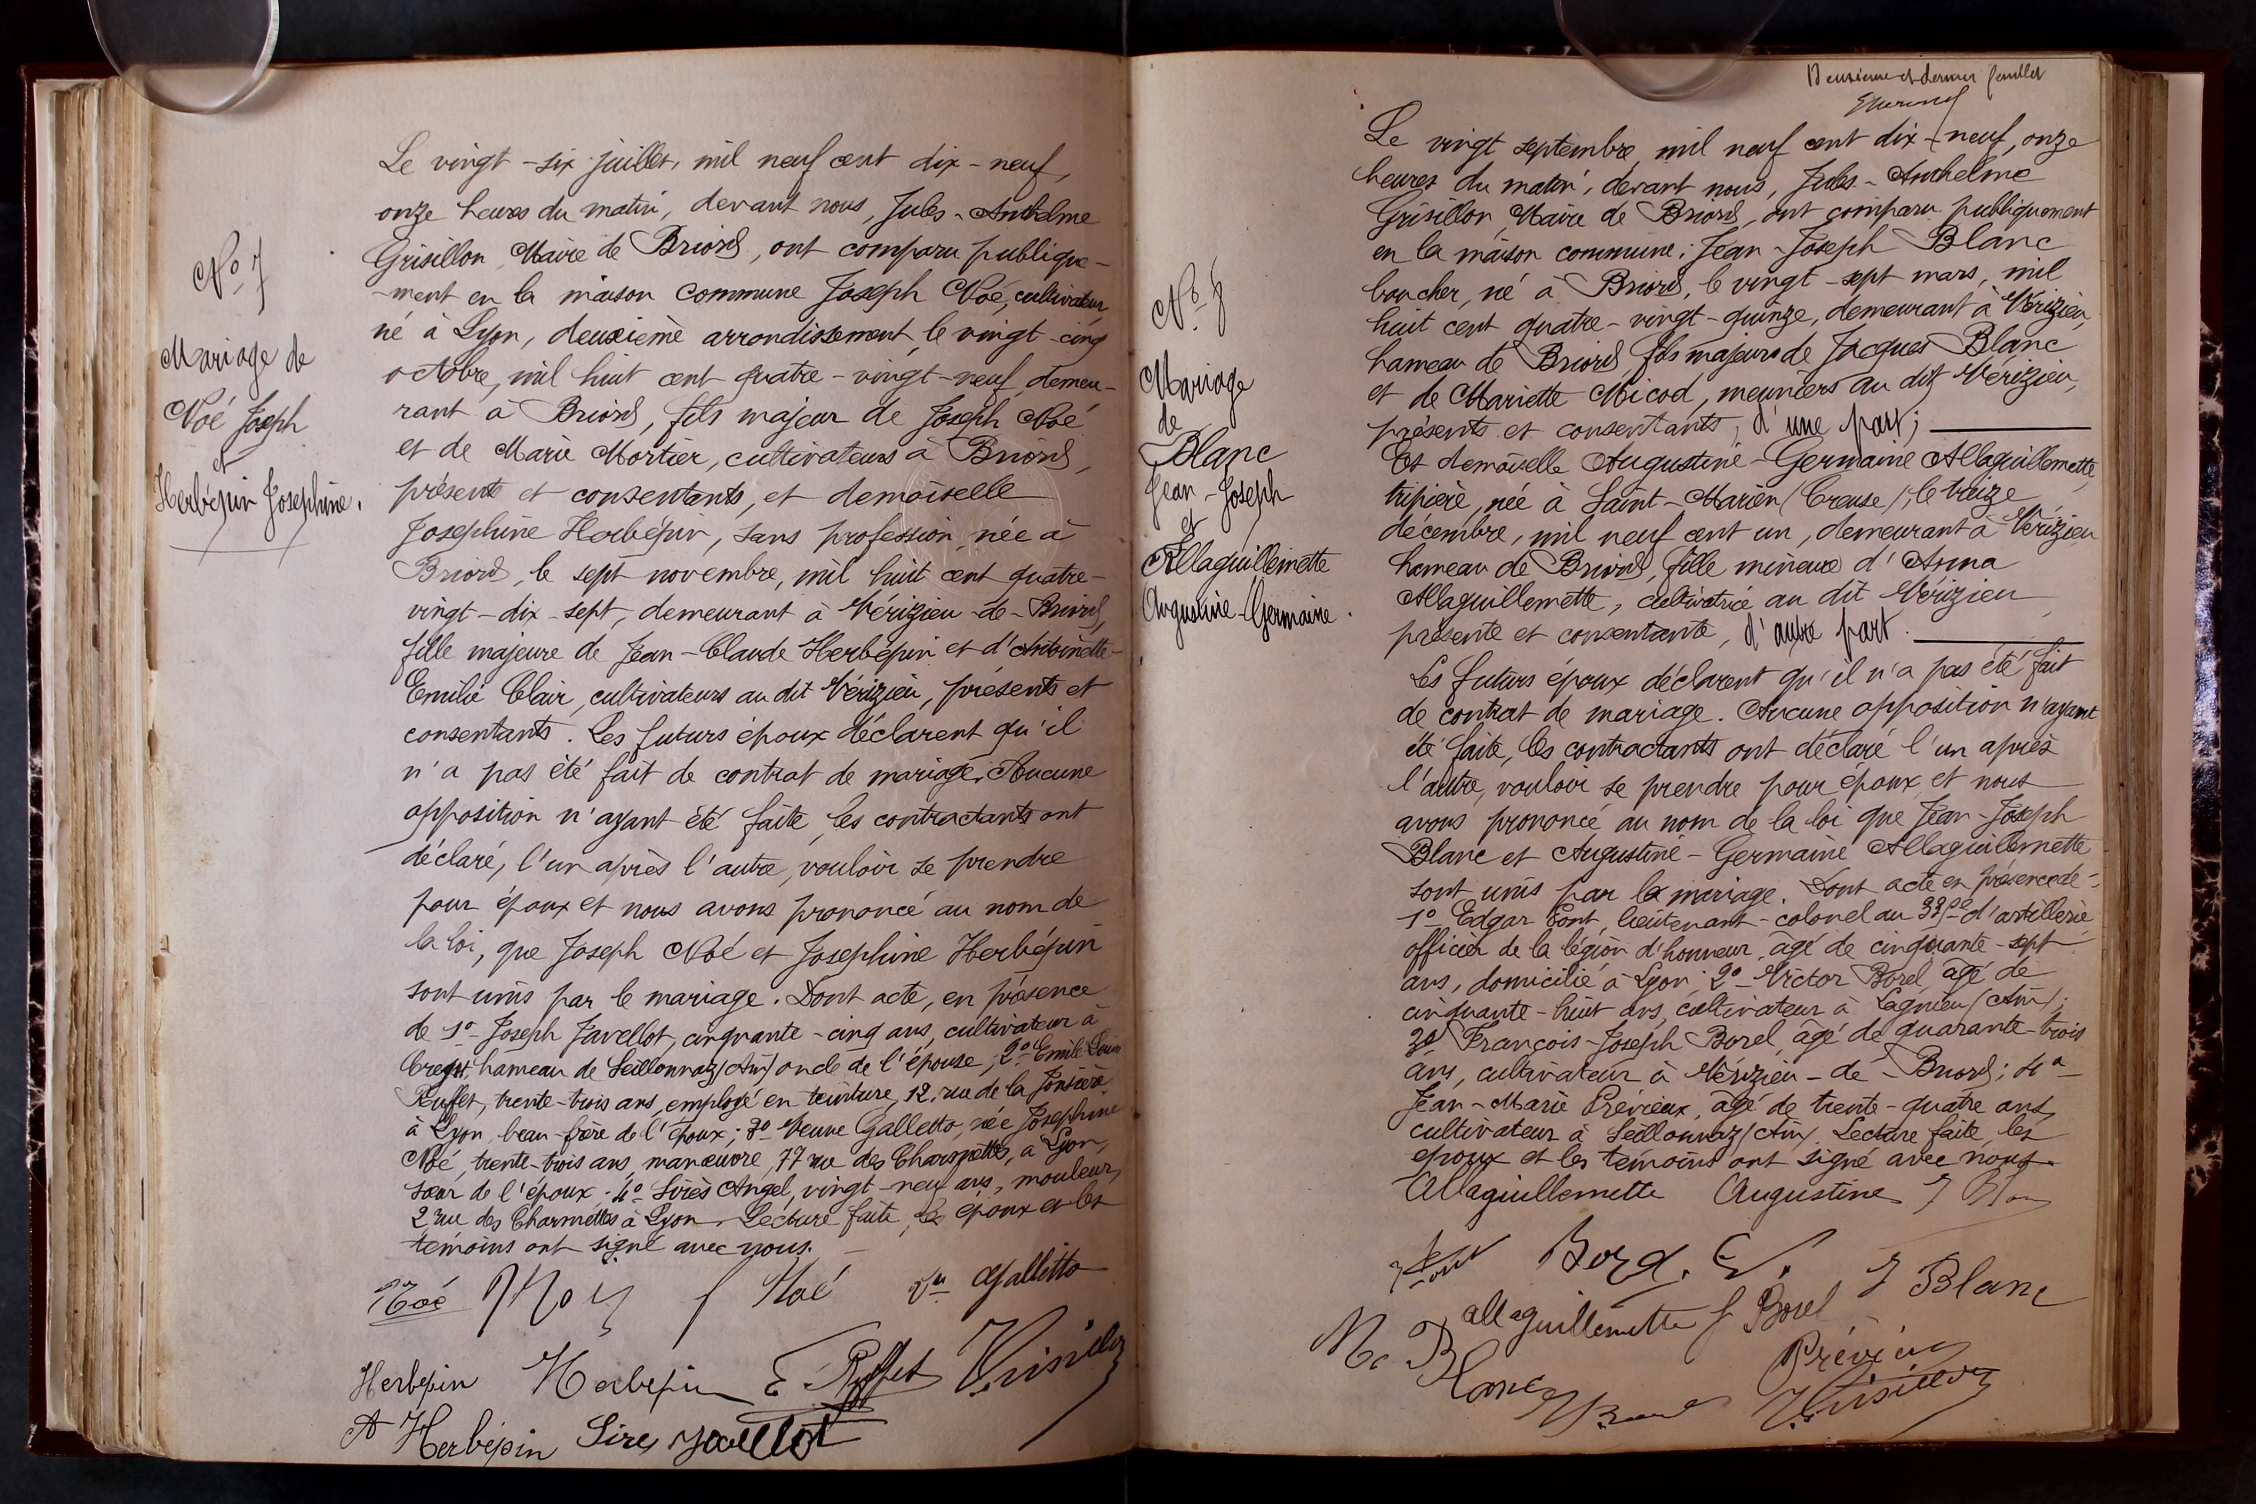 No 7
Mariage de
Noé Joseph
et
Herbépin Josephine.
Le vingt-six juillet, mil neuf cent dix-neuf,
onze heures du matin, devant nous, Jules-Anthelme
Grisillon, Maire de Briord, ont comparu publique-
-ment en la maison commune Joseph Noé, cultivateur,
né à Lyon, deuxième arrondissement, le vingt-cinq
octobre, mil huit cent quatre-vingt-neuf, demeu-
rant à Briord, fils majeur de Joseph Noé
et de Marie Mortier, cultivateurs à Briord,
présents et consentants, et demoiselle
Josephine Herbépin, sans profession, née à
Briord, le sept novembre, mil huit cent quatre-
vingt-dix-sept, demeurant à Vérizieu-de-Briord,
fille majeure de Jean-Claude Herbépin et d'Antoinette-
Emilie Clair, cultivateurs au dit Vérizieu, présents et
consentants. Les futurs époux déclarent qu'il
n'a pas été fait de contrat de mariage. Aucune
opposition n'ayant été faite, les contractants ont
déclaré, l'un après l'autre, vouloir se prendre
pour époux et nous avons prononcé au nom de
la loi, que Joseph Noé et Josephine Herbépin
sont unis par le mariage. Dont acte, en présence
de 1o Joseph Javellot, cinquante-cinq ans, cultivateur à
hameau de Seillonnaz (Ain) oncle de l'épouse; 2o Emile
Ruffet, trente-trois ans, employé en teinture, 12, rue de la
à Lyon, beau-frère de l'époux; 3o Veuve Galletto, née Josephine
Noé, trente-trois ans, manœuvre, 77 rue des Charmettes, à Lyon,
sœur de l'époux. 4o Sirès Angel, vingt-neuf ans, mouleur,
2 rue des Charmettes à Lyon. Lecture faite, les époux et les
témoins ont signé avec nous.
Noé Noé J Noé Vve Gallitto
Herbépin Herbepin E. Ruffet Grisillon
A Herbépin Sires Javellot
Deuxième et dernier feuillet
No 8
Mariage
de
Blanc
Jean-Joseph
et
Allaguillemette
Augustine-Germaine.
Le vingt septembre, mil neuf cent dix-neuf, onze
heures du matin, devant nous, Jules-Anthelme
Grisillon, Maire de Briord, ont comparu publiquement
en la maison commune: Jean-Joseph Blanc
boucher, né à Briord, le vingt-sept mars, mil
huit cent quatre-vingt-quinze, demeurant à Vérizieu,
hameau de Briord, fils majeur de Jacques Blanc
et de Mariette Micod, meuniers au dit Vérizieu,
présents et consentants, d'une part;
Et demoiselle Augustine-Germaine Allaguillemette,
tripière, née à Saint-Marien (Creuse), le treize
décembre, mil neuf cent un, demeurant à Vérizieu
hameau de Briord, fille mineure d'Anna
Allaguillemette, cultivatrice au dit Vérizieu
présente et consentante, d'autre part.
Les futurs époux déclarent qu'il n'a pas été fait
de contrat de mariage. Aucune opposition n'ayant
été faite, les contractants ont déclaré l'un après
l'autre, vouloir se prendre pour époux, et nous
avons prononcé au nom de la loi que Jean-Joseph
Blanc et Augustine-Germaine Allaguillemette
sont unis par le mariage. Dont acte en présence de:
1o Edgar Pont, lieutenant-colonel au d'artillerie
officier de la légion d'honneur, âgé de cinquante-sept
ans, domicilié à Lyon; 2o Victor Borel, âgé de
cinquante-huit ans, cultivateur à Lagnieu (Ain);
3o François-Joseph Borel, âgé de quarante-trois
ans, cultivateur à Vérizieu-de-Briord; 4o
Jean-Marie Prévieux, âgé de trente-quatre ans,
cultivateur à Seillonnaz (Ain). Lecture faite, les
époux et les témoins ont signé avec nous.
Allaguillemette Augustine J Blanc
Pont J Blanc
allaguillemette J Borel
M. Blanc Prévieux
Grisillon